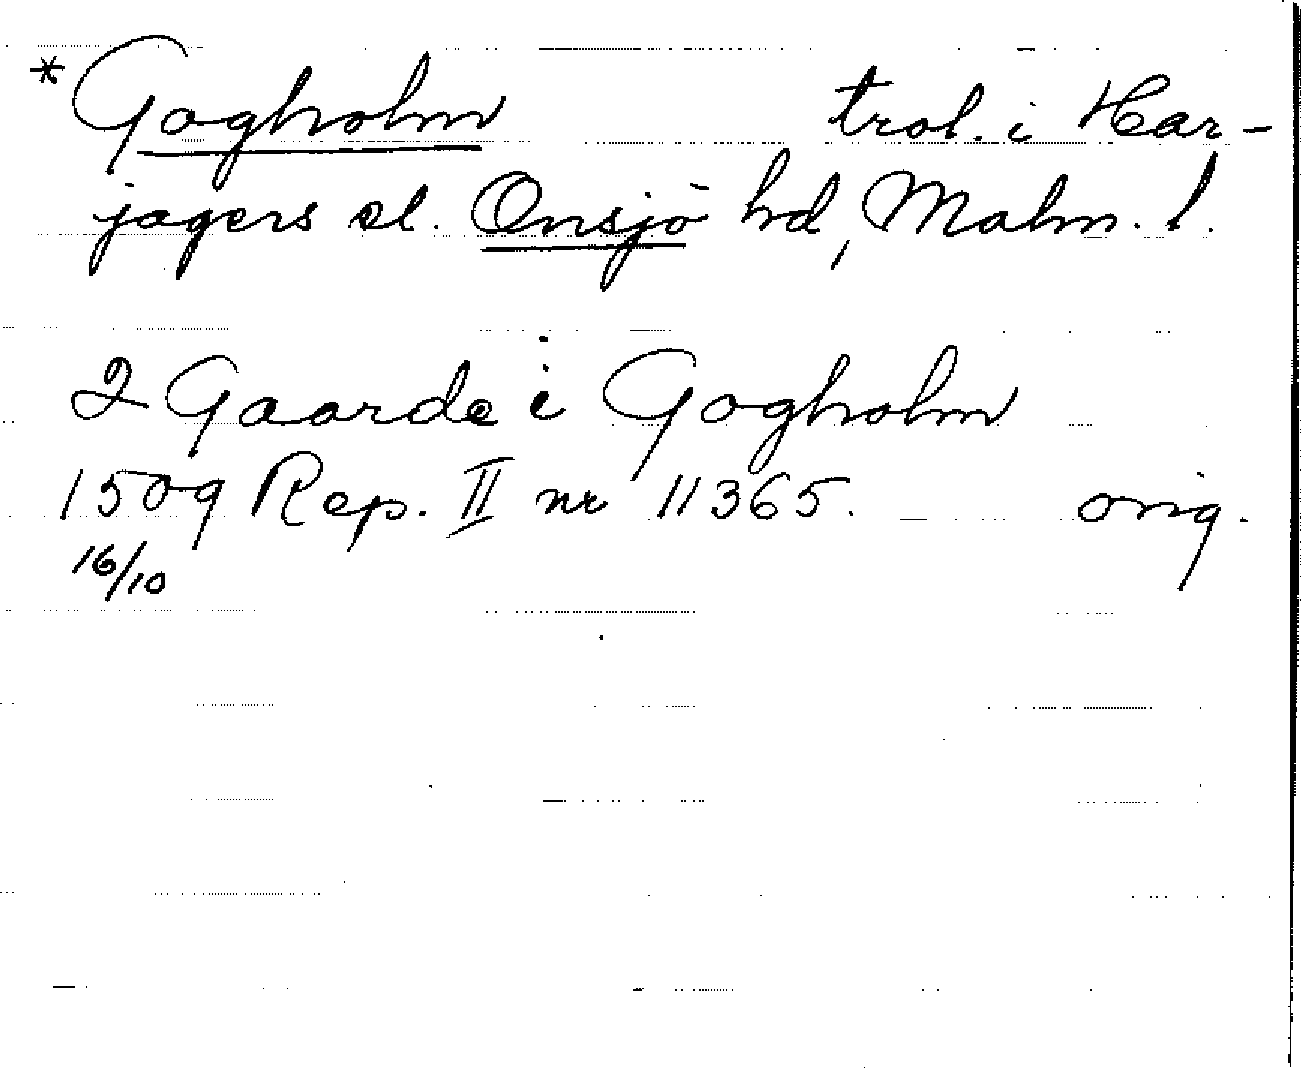 * Gogholm trol. i Har-
jagers el. Onsjö hd, Malm. l.
2 Gaarde i Gogholm
1509 Rep. II nr 11365. orig.
16/10